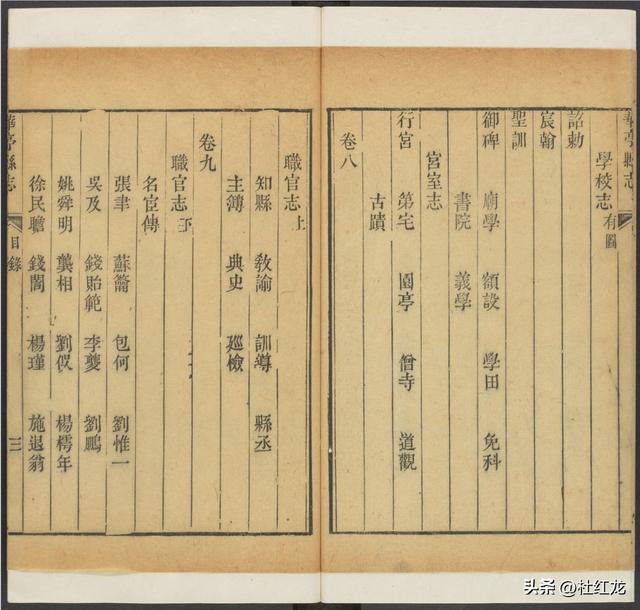 華亭縣志
學校志 有圖
詔勅
宸翰
聖訓
御碑 廟學 額設 學田 免科
書院 義學
宮室志
行宮 第宅 園亭 僧寺 道觀
古蹟
卷八
職官志上
知縣 敎諭 訓導 縣丞
主簿 典史 廵檢
卷九
職官志下
名宦傳
張聿 蘇籥 包何 劉惟一
吳及 錢貽範 李夔 劉鵬
姚舜明 龔相 劉俁 楊樗年
徐民瞻 錢閶 楊瑾 施退翁
華亭縣志 目錄 三
头条 @杜红龙